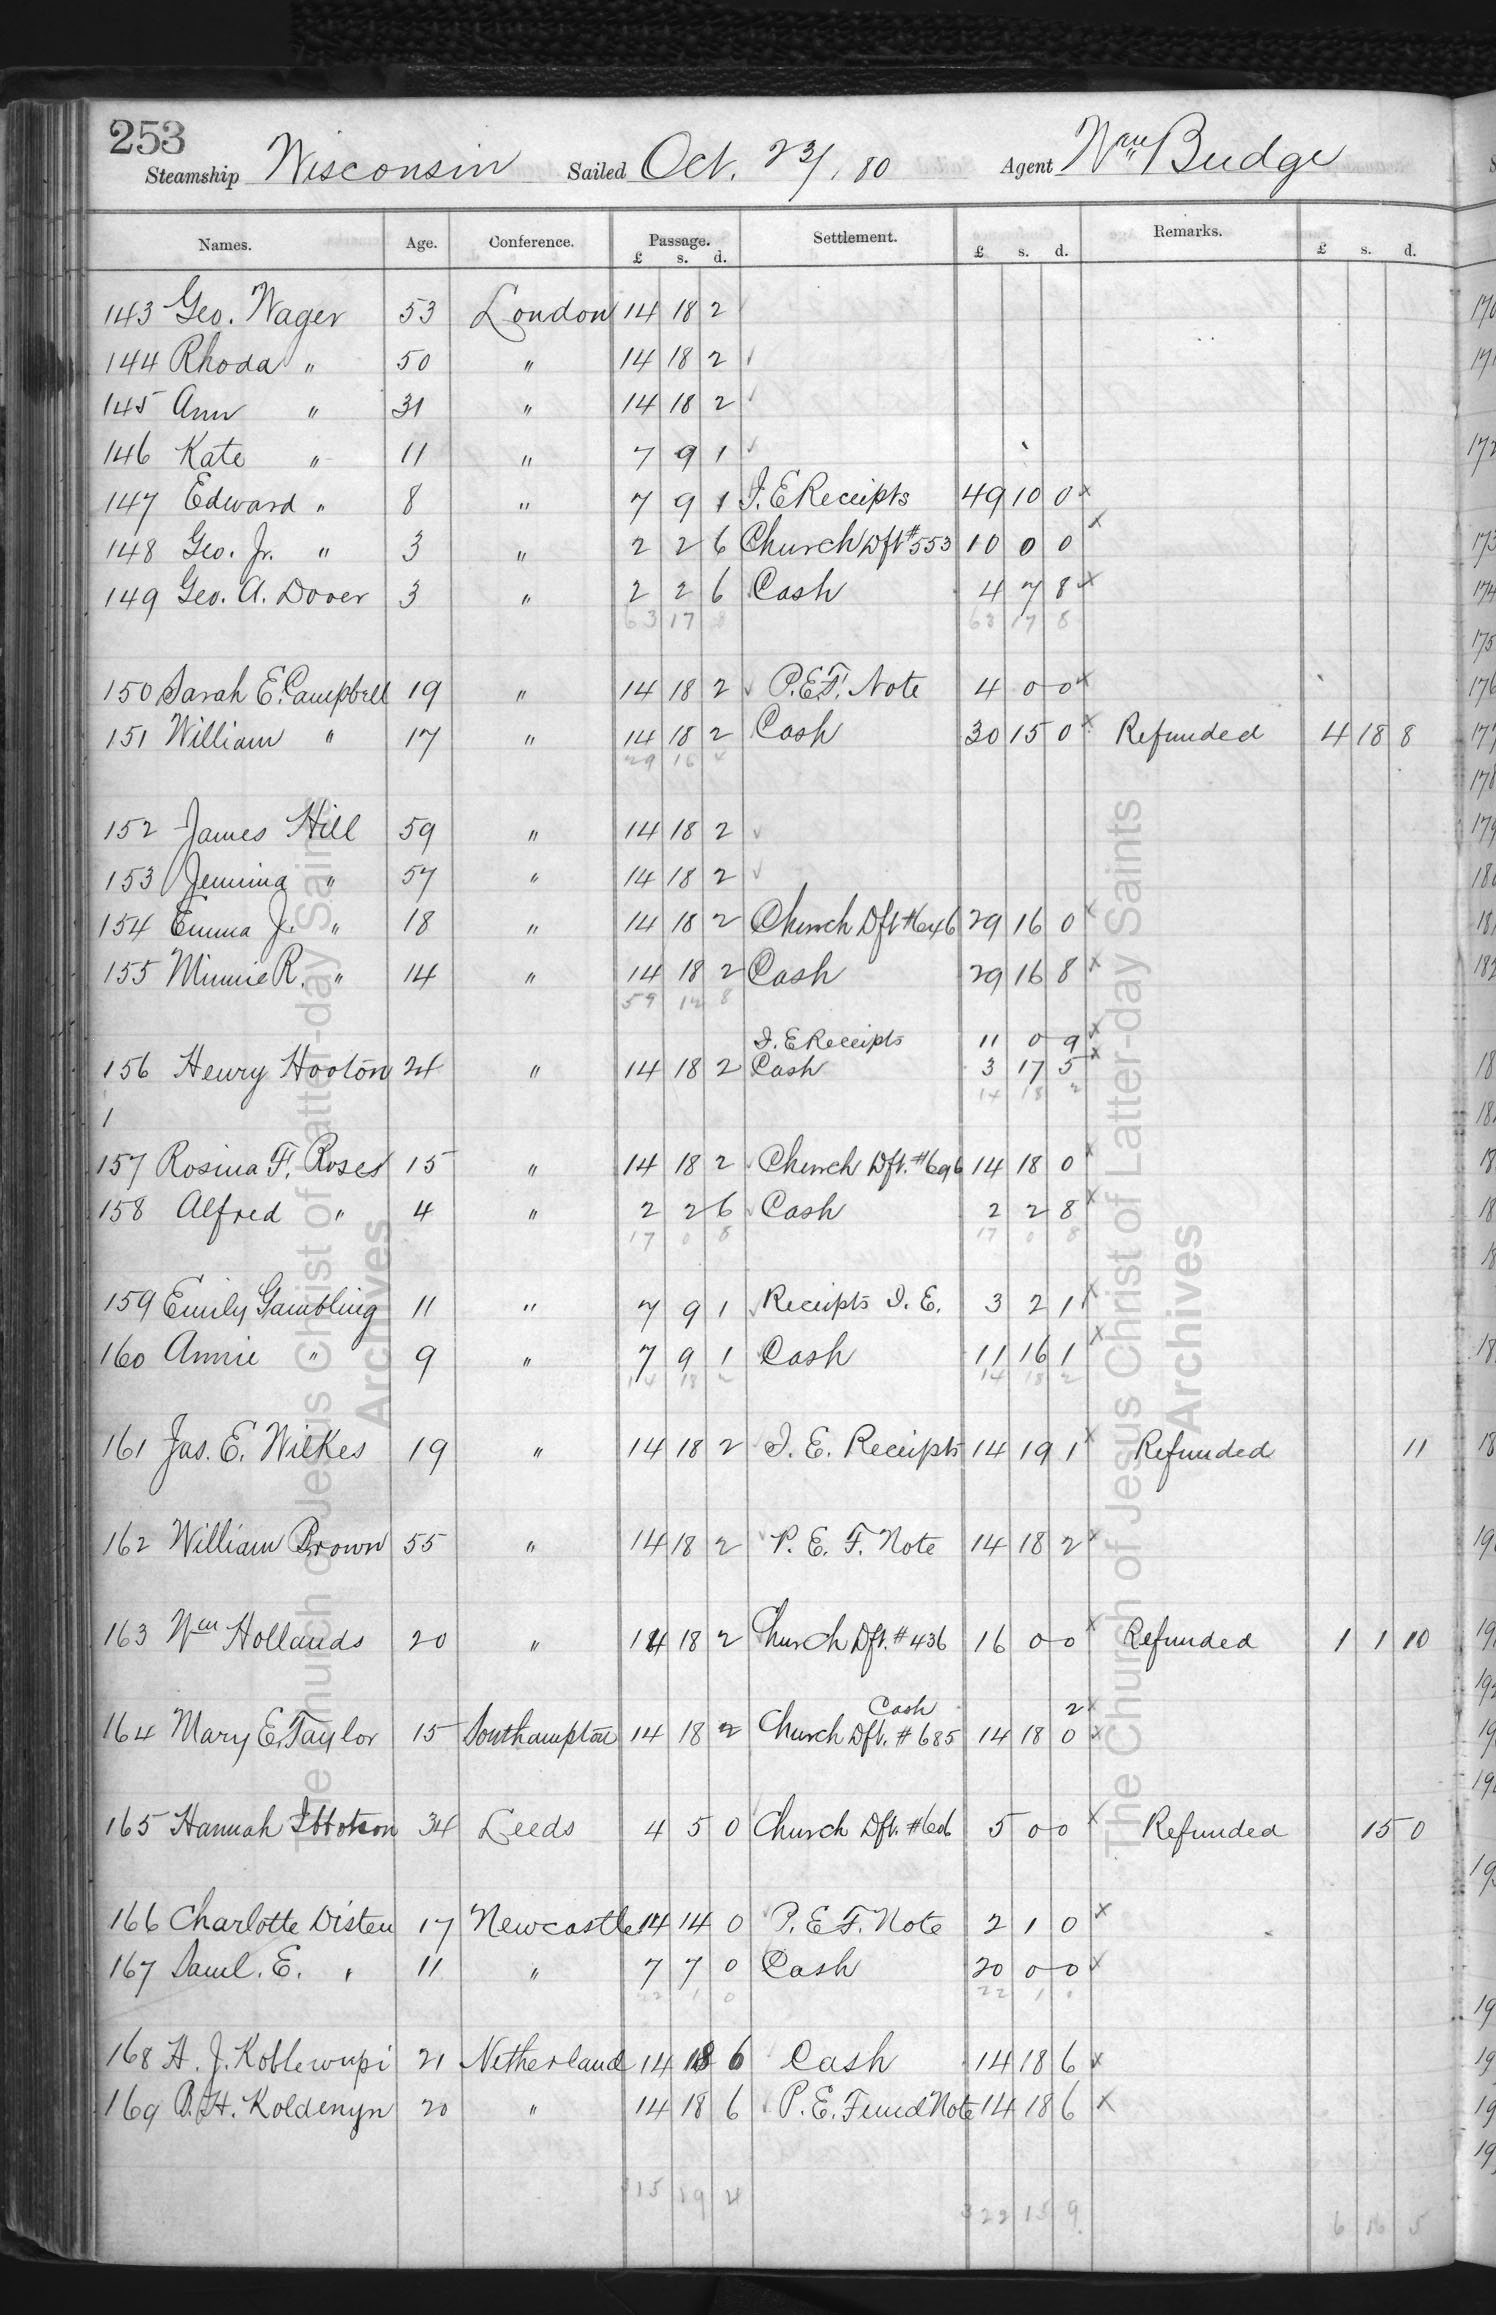 253
Steamship Wisconsin Sailed Oct. 23/80 Agent Wm Budge
Names. Age. Conference. Passage. Settlement. Remarks.
£ s. d. £ s. d. £ s. d.
143 Geo. Wager 53 London 14 18 2
144 Rhoda " 50 " 14 18 2 ✓
145 Ann " 31 " 14 18 2 ✓
146 Kate " 11 " 7 9 1 ✓
147 Edward " 8 " 7 9 1 I. E Receipts 49 10 0 x
148 Geo. Jr. " 3 " 2 2 6 Church Dft #553 10 0 0 x
149 Geo. A. Dover 3 " 2 2 6 Cash 4 7 8 x
63 17 8 63 17 8
150 Sarah E. Campbell 19 " 14 18 2 ✓ P.E.F. Note 4 0 0 x
151 William " 17 " 14 18 2 Cash 30 15 0 x Refunded 4 18 8
29 16 4
152 James Hill 59 " 14 18 2 ✓
153 Jemima " 57 " 14 18 2 ✓
154 Emma J. " 18 " 14 18 2 Church Dft #646 29 16 0 x
155 Minnie R. " 14 " 14 18 2 Cash 29 16 8 x
59 12 8
I. E Receipts 11 0 9 x
156 Henry Hooton 24 " 14 18 2 Cash 3 17 5 x
14 18 2
1
157 Rosina F. Roses 15 " 14 18 2 ✓ Church Dft. #696 14 18 0 x
158 Alfred " 4 " 2 2 6 ✓ Cash 2 2 8 x
17 0 8 17 0 8
159 Emily Gambling 11 " 7 9 1 ✓ Receipts I. E. 3 2 1 x
160 Annie " 9 " 7 9 1 ✓ Cash 11 16 1 x
14 18 2 14 18 2
161 Jas. E. Wilkes 19 " 14 18 2 ✓ I. E. Receipts 14 19 1 x Refunded 11
162 William Brown 55 " 14 18 2 ✓ P. E. F. Note 14 18 2 x
163 Wm Hollands 20 " 14 18 2 Church Dft. #436 16 0 0 x Refunded 1 1 10
Cash 2 x
164 Mary E. Taylor 15 Southampton 14 18 2 Church Dft. #685 14 18 0 x
165 Hannah Ibbotson 34 Leeds 4 5 0 Church Dft. #606 5 0 0 x Refunded 15 0
166 Charlotte Disten 17 Newcastle 14 14 0 ✓ P. E F. Note 2 1 0 x
167 Saml. E. " 11 " 7 7 0 Cash 20 0 0 x
22 1 0 22 1 0
168 H. J. Koblewupi 21 Netherland 14 18 6 Cash 14 18 6 x
169 B. H. Koldenyn 20 " 14 18 6 ✓ P. E. Fund Note 14 18 6 x
315 19 4
322 15 9
6 16 5
The Church of Jesus Christ of Latter-day Saints
Archives
The Church of Jesus Christ of Latter-day Saints
Archives